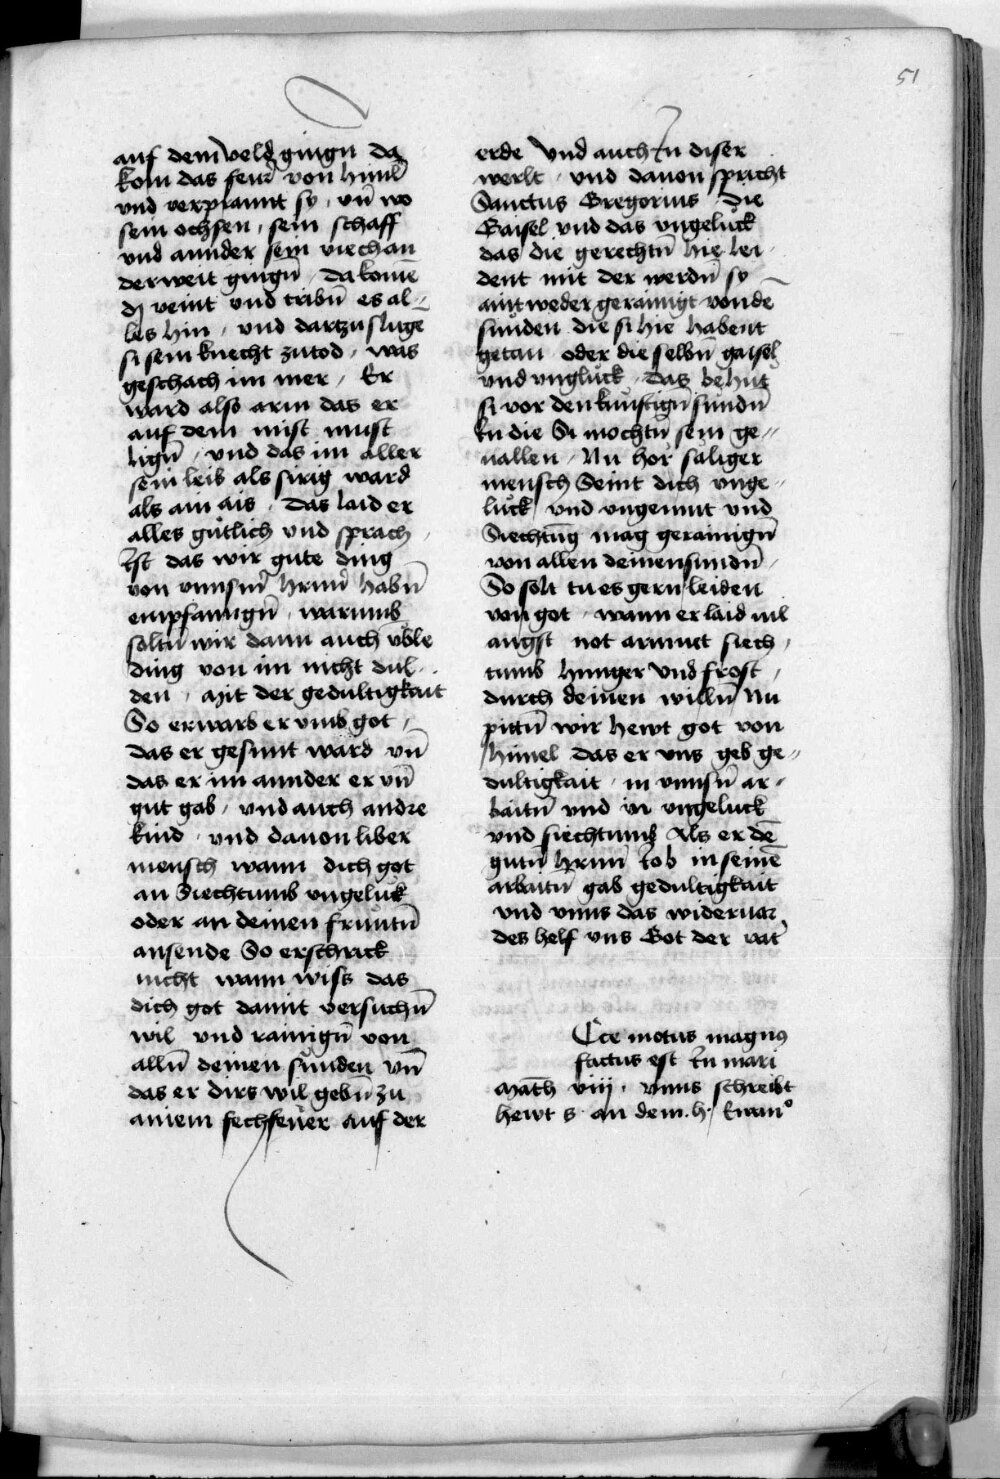 51
auf dem veld gingn da
kom das feur von himl
und verprannt sy, un̄ wo
sein ochsen, sein schaff
und annder sein viech an
der weit gingn̄, da komē
dỹ veint und tribn̄ es al-
les hin, und dartzu slugē
si sein knecht zutod, was
geschach im mer, Er
ward also arm das er
auf dem mist must
lign̄, und das im aller
sein leib als sirig ward
als ain ais, das laid er
alles gůtlich und sprach,
Ist das wir gute ding
von unnsm̄ hrnn̄ habn̄
empfanngn̄, warumb
soltn̄ wir dann auch vble
ding von im nicht dul-
den, Mit der gedultigkait
So erwarb er umb got,
das er gesunt ward un̄
das er im annder er un̄
gut gab, und auch andre
kind, und dauon liber
mensch wann dich got
an Siechtumb ungelůk
oder an deinen frůntn̄
ansende So erschrick
nicht wann wiss das
dich got damit versuchn̄
wil und rainign̄ von
alln̄ deinen sůnden un̄
das er dirs wil gebn̄ zu
ainem fechfeůer auf der
erde Und auch In diser
werlt, und dauon spricht
Sanctus Gregorius, Die
Gaisel und das ungelůck
das die gerechtn̄ hie lei-
dent mit der werdn̄ sy
aintweder gerainigt von dē
sůnden die si hie habent
getan oder die selbn̄ gaisel
und unglůck, das behůt
si vor den kůnftign̄ sůndn̄
In die Si mochtn̄ sein ge-
uallen, Nu hor saliger
mensch Seint dich unge-
lůck und ungemut und
Siechtūg mag gerainign̄
von allen deinen sundn̄,
So solt tu es gern leiden
von got, wann er laid uil
angst not armut siech,
tumb hunger Und frost,
durch deinen willn̄ Nu
pittn̄ wir hewt got von
himel das er uns geb ge-
dultigkait, in unnsn̄ ar-
baitn̄ und in ungeluck
und siechtumb Als er dē
gutn̄ hrnn̄ Iob in seinē
arbaitn̄ gab gedultigkait
und unns das wideruar
des helf uns Got der vat̄
Ecce motus magnus
factus est In mari
Math viij. Unns schreibt
hewt s. an dem .h. Ewan°